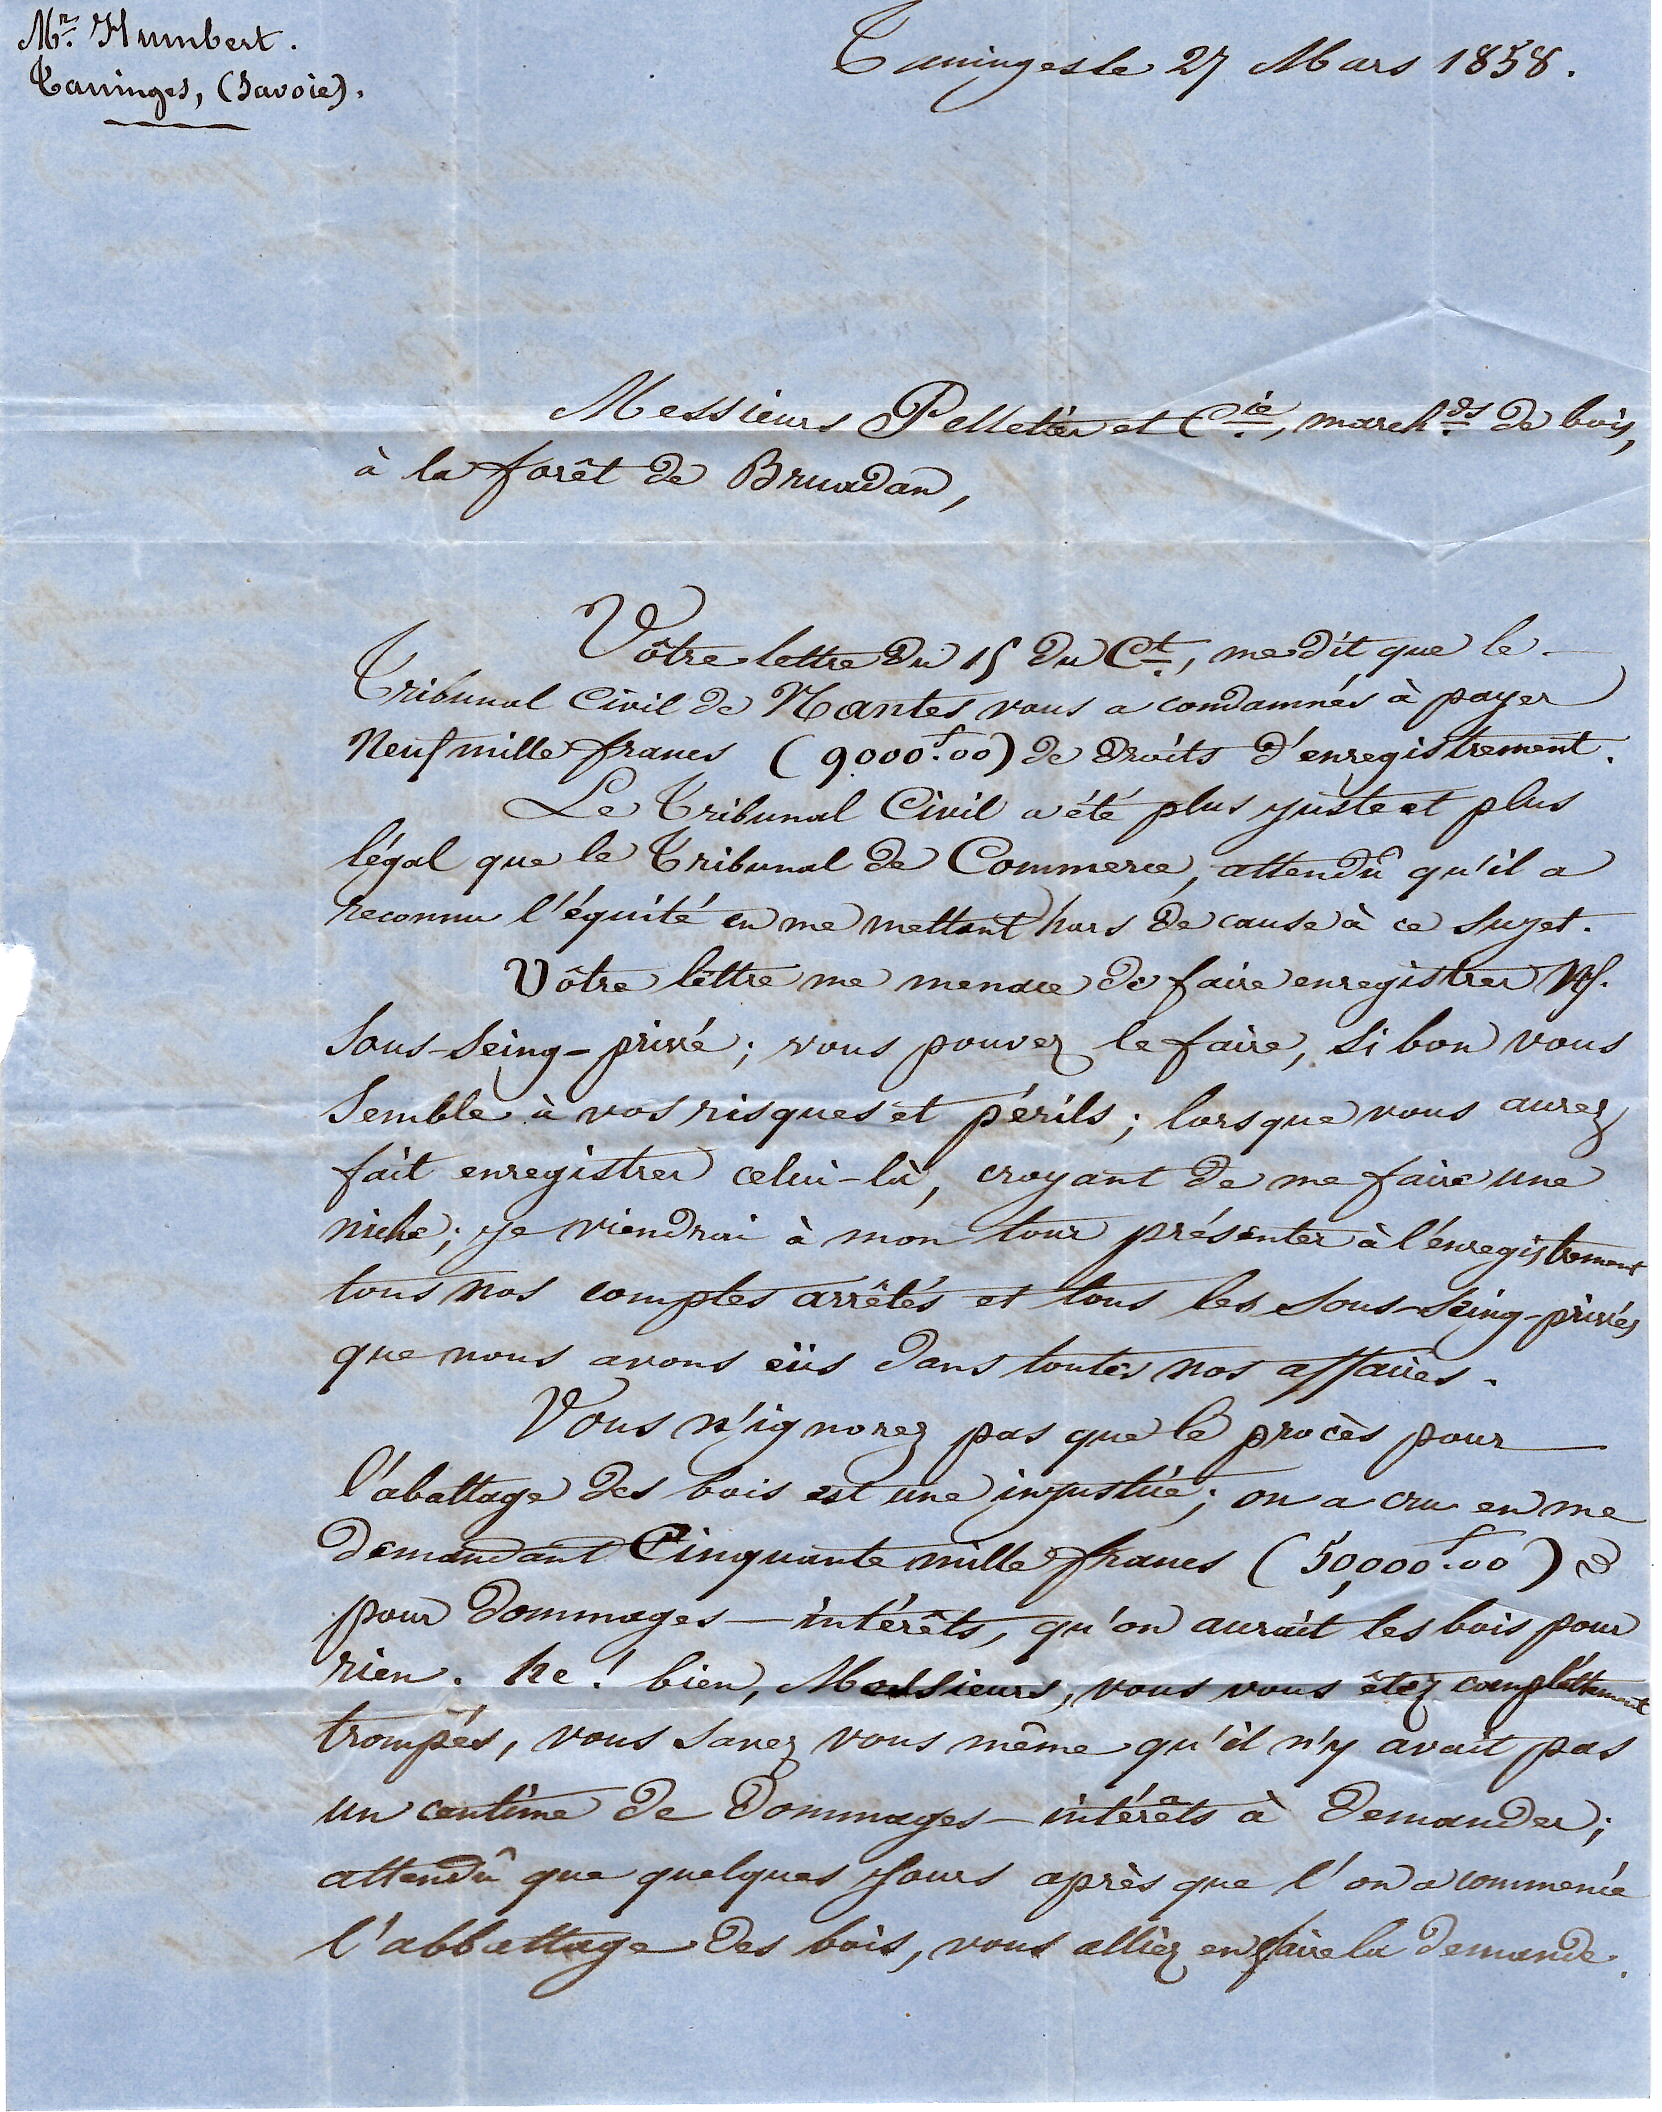 Mr. Humbert.
Taninges, (Savoie).
Taninges le 27 Mars 1858.
Messieurs Pelletier et Cie, marchds de bois,
à la forêt de Bruadan,
Vôtre lettre du 15 du Ct, me dit que le
Tribunal Civil de Nantes vous a condamnés à payer
Neuf mille francs (9000f.00) de droits d'enregistrement.
Le Tribunal Civil a été plus juste et plus
légal que le Tribunal de Commerce, attendû qu'il a
reconnu l'équité en me mettant hors de cause à ce sujet.
Vôtre lettre me menace de faire enregistrer
Sous-Seing-privé; vous pouvez le faire, si bon vous
Semble à vos risques et périls; lorsque vous aurez
fait enregistrer celui-là, croyant de me faire une
niche; je viendrai à mon tour présenter à l'enregistrement
tous nos comptes arrêtés et tous les Sous-Seing-privés
que nous avons eüs dans toutes nos affaires.
Vous n'ignorez pas que le procès pour
l'abattage des bois est une injustice; on a cru en me
demandant Cinquante mille francs (50,000f.00)
pour dommages-intérêts, qu'on aurait les bois pour
rien. he! bien, Messieurs, vous vous êtez complêttement
trompés, vous savez vous même qu'il n'y avait pas
un centime de Dommages-intérêts à demander;
attendû que quelques jours après que l'on a commencé
l'abbattage des bois, vous alliez en faire la demande.